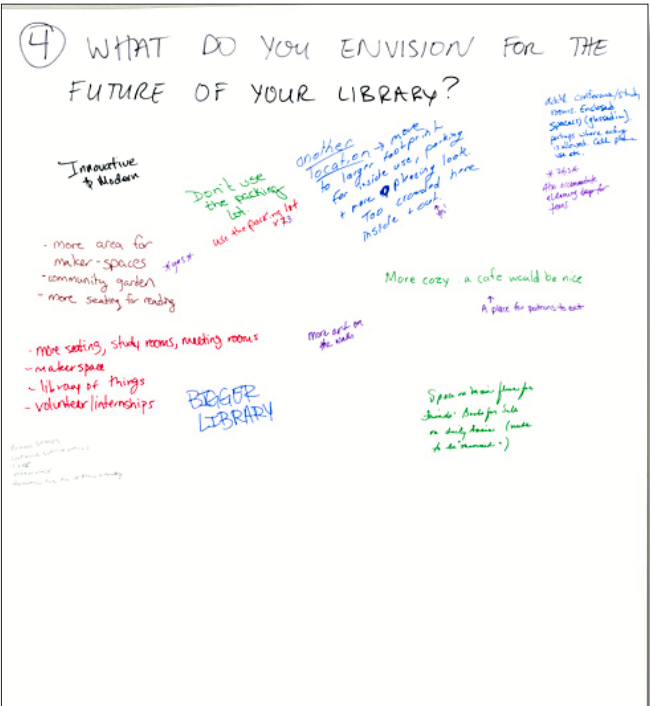 4 WHAT DO YOU ENVISION FOR THE
FUTURE OF YOUR LIBRARY?
Innovative
& Modern
Don't use
the parking
lot.
use the parking lot
another
location → more
to larger footprint
for inside use, parking
+ more pleasing look.
Too crowded here
inside + out.
conference/study
rooms. Enclosed
spaces
perhaps where eating
is allowed. Cell phone
use etc.
Also accommodate
- more area for
maker-spaces
*yes*
- community garden
- more seating for reading
More cozy a cafe would be nice
↑
A place for patrons to eat
more art on
the walls
- more seating, study rooms, meeting rooms
- makerspace
- library of things
- volunteer/internships
BIGGER
LIBRARY
Space on main floor for
Friends. Books for Sale
on daily basis (
to be